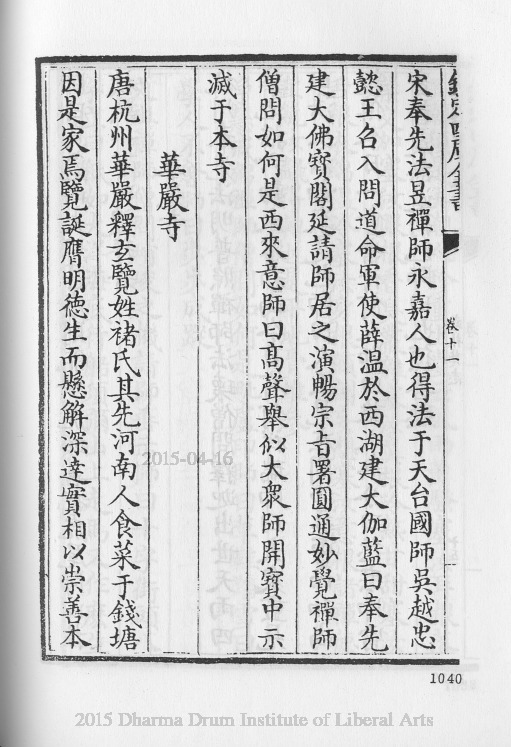 欽定四庫全書
卷十一
宋奉先法昱禪師永嘉人也得法于天台國師吳越忠
懿王召入問道命軍使薛温於西湖建大伽藍曰奉先
建大佛寳閣延請師居之演暢宗旨署圓通妙覺禪師
僧問如何是西來意師曰髙聲舉似大衆師開寳中示
滅于本寺
華嚴寺
唐杭州華嚴釋玄覽姓禇氏其先河南人食菜于錢塘
因是家焉覽誕膺明德生而懸解深逹實相以崇善本
1040
2015-04-16
2015 Dharma Drum Institute of Liberal Arts